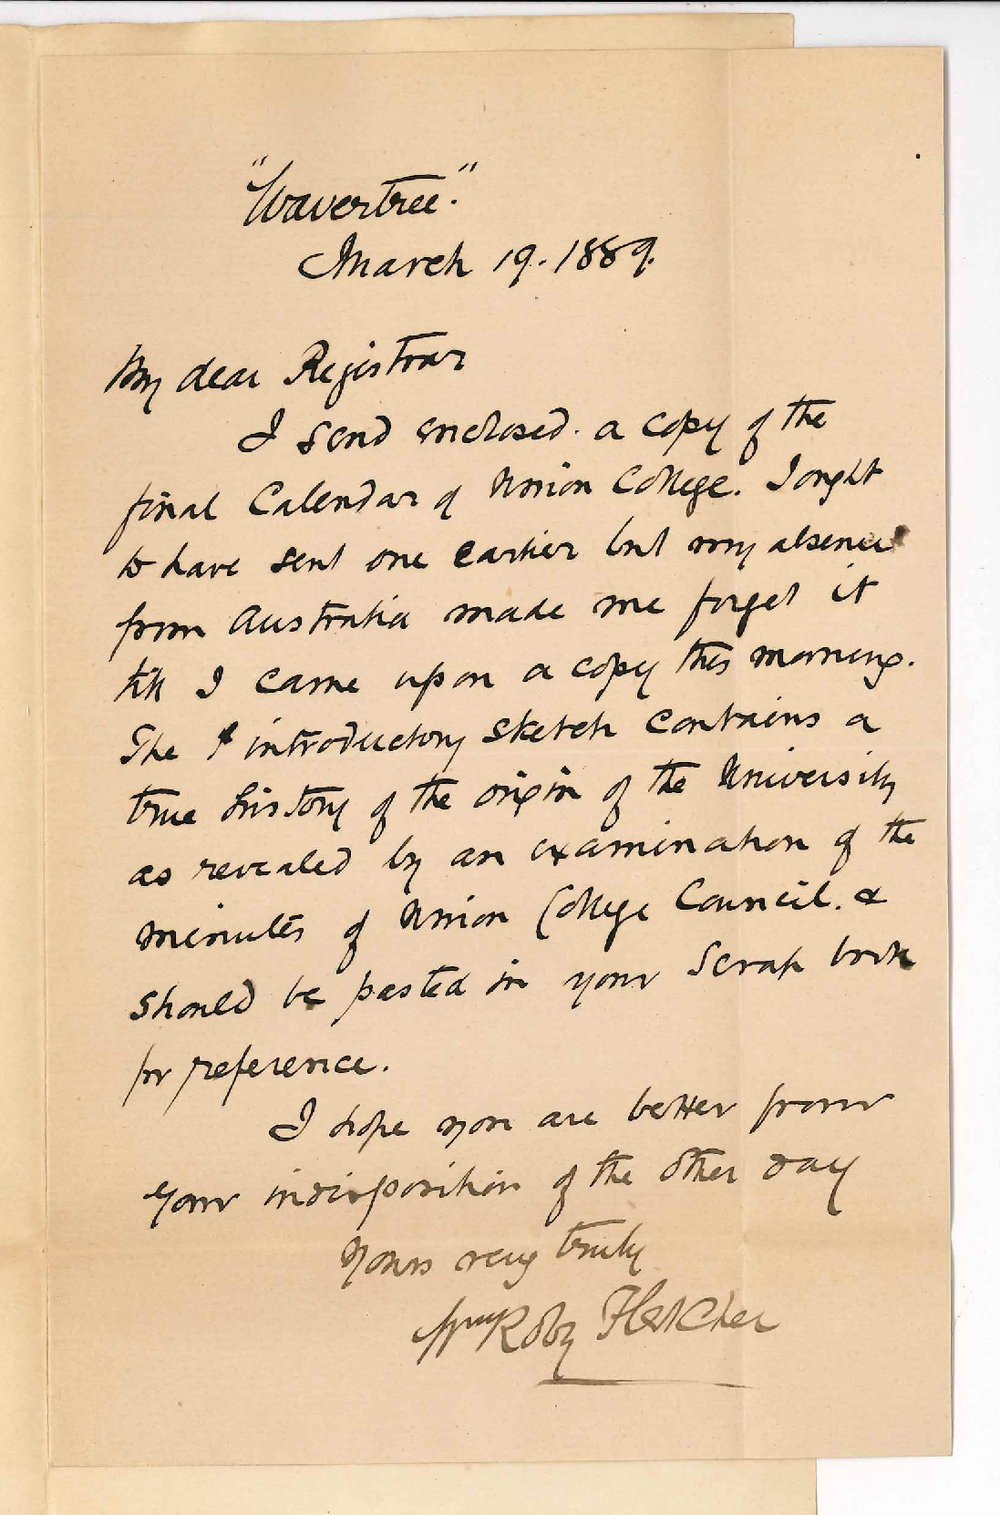 "Wavertree".
March 19. 1889.
My dear Registrar
I send enclosed. a copy of the
final Calendar of Union College. I ought
to have sent one earlier but my absence
from Australia made me forget it
till I came upon a copy this morning.
The introductory sketch contains a
true history of the origin of the University
as revealed by an examination of the
minutes of Union College Council. &
should be pasted in your Scrap book
for reference.
I hope you are better from
your indisposition of the other day
Yours very truly
Wm Roby Fletcher